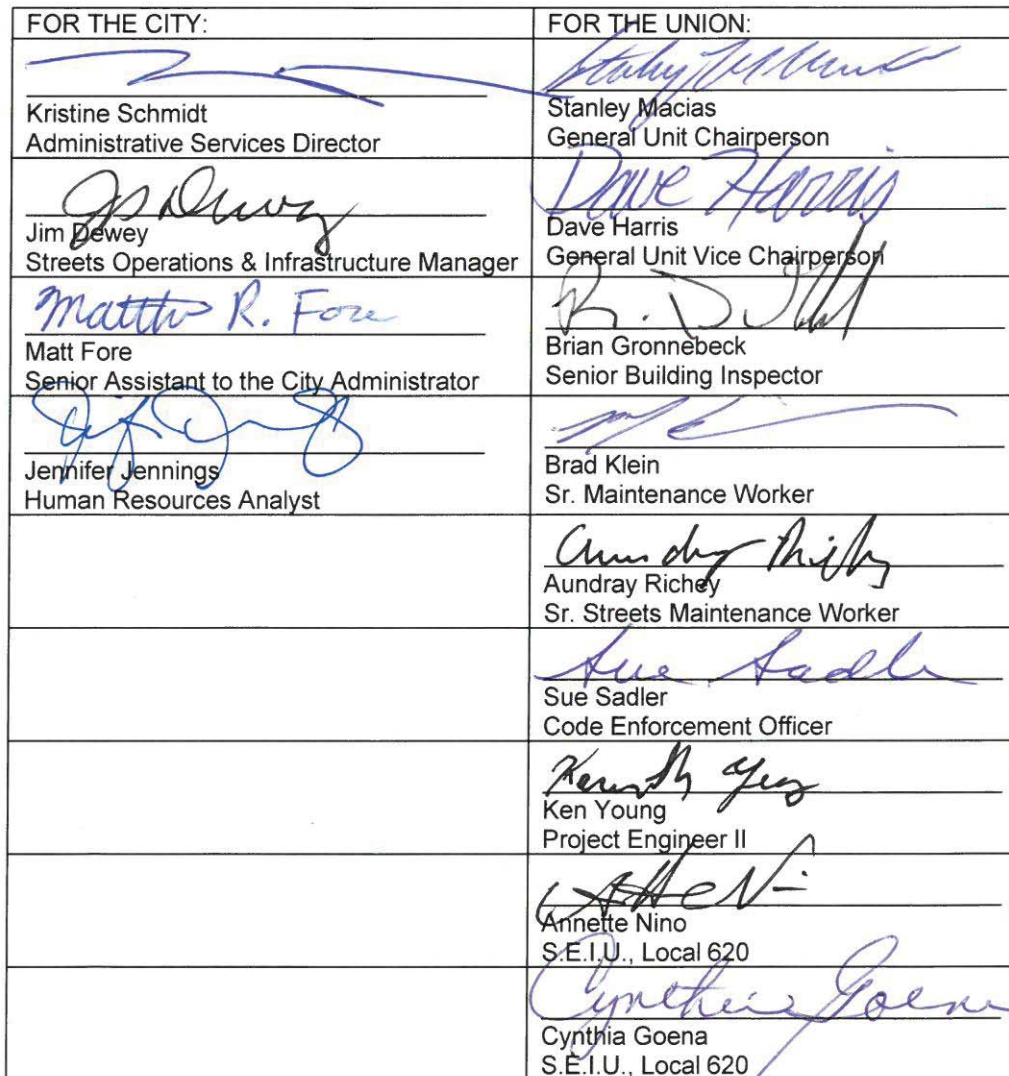 FOR THE CITY:
FOR THE UNION:
Kristine Schmidt
Administrative Services Director
Stanley Macias
General Unit Chairperson
Jim Dewey
Streets Operations & Infrastructure Manager
Dave Harris
Dave Harris
General Unit Vice Chairperson
Matthew R. Fore
Matt Fore
Senior Assistant to the City Administrator
Brian Gronnebeck
Senior Building Inspector
Jennifer Jennings
Human Resources Analyst
Brad Klein
Sr. Maintenance Worker
Aundray Richey
Sr. Streets Maintenance Worker
Sue Sadler
Sue Sadler
Code Enforcement Officer
Ken Young
Project Engineer II
Annette Nino
S.E.I.U., Local 620
Cynthia Goena
Cynthia Goena
S.E.I.U., Local 620